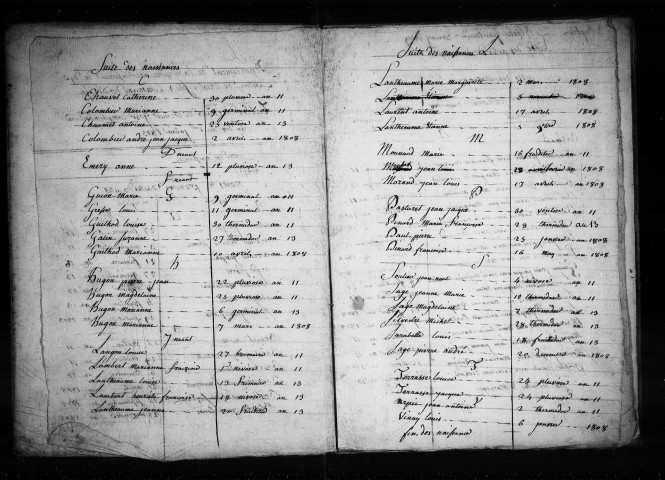 Suite des naissances
C
Chauvet Catherine 30 pluviose an 11
Colombier Marianne 9 germinal an 11
Chaumet antoine 25 ventose an 13
Colombier andré jean jacque 2 avril an 1808
D neant
Emery anne 12 pluviose an 13
F neant
G
Guion Marie 9 germinal an 11
Gresse louis 11 germinal an 11
Guilhod louise 30 thermidor an 11
Galin Suzanne 27 thermidor an 13
Guilhod Marianne 10 avril an 1808
h
hugon pierre jean 22 pluviose an 11
hugon magdelaine 25 pluviose an 11
hugon Marianne 6 germinal an 13
hugon Marianne 7 mars an 1808
J neant
L
Laugon louise 27 brumaire an 11
Lambert Marianne françoise 1 nivose an 11
Lanthaume louise 13 frimaire an 13
Lambert françoise 18 nivose an 13
Lanthaume jeanne 20 fructidor an 13
Suite des naissances L
Lanthaume Marie Marguerite 2 mai 1808
Laurent antoine 17 avril 1808
Lanthaume Etienne 3 9bre 1808
M
Monnard Marie 16 fructidor an 11
jean louis 1808
Morand jean louis 17 avril an 1808
P
Pasturel jean jacque 30 ventose an 11
Pinard Marie françoise 28 thermidor an 13
Paul pierre 25 janvier an 1808
Pinard françoise 16 may an 1808
S
4 nivose an 11
Sage jeanne Marie 18 thermidor an 11
Sage Magdelaine 7 thermidor an 13
Silvestre Michel 28 thermidor an 13
Sarabotte louis 18 fructidor an 13
Sage pierre andré 20 an 1808
T
Terrasse louise 24 pluviose an 11
Terrasse jacque 24 pluviose an 11
jean antoine 2 thermidor an 11
Vinay louis 6 janvier 1808
fin des naissance